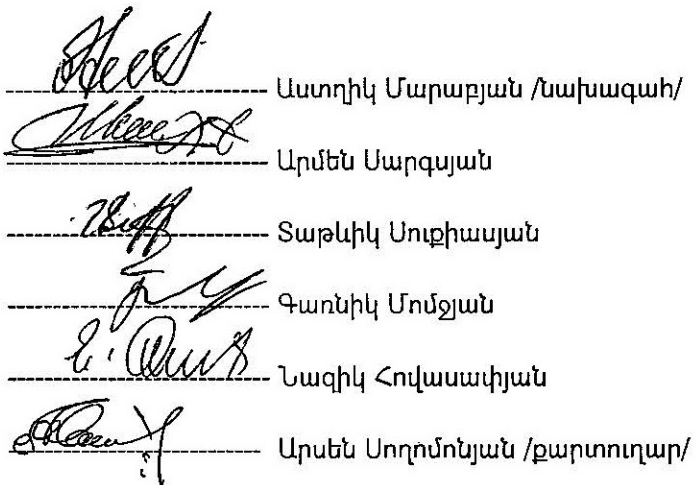 Աստղիկ Մարաբյան /նախագահ/
Արմեն Սարգսյան
Տաթևիկ Սուքիասյան
Գառնիկ Մոմջյան
Նազիկ Հովասափյան
Արսեն Սողոմոնյան /քարտուղար/